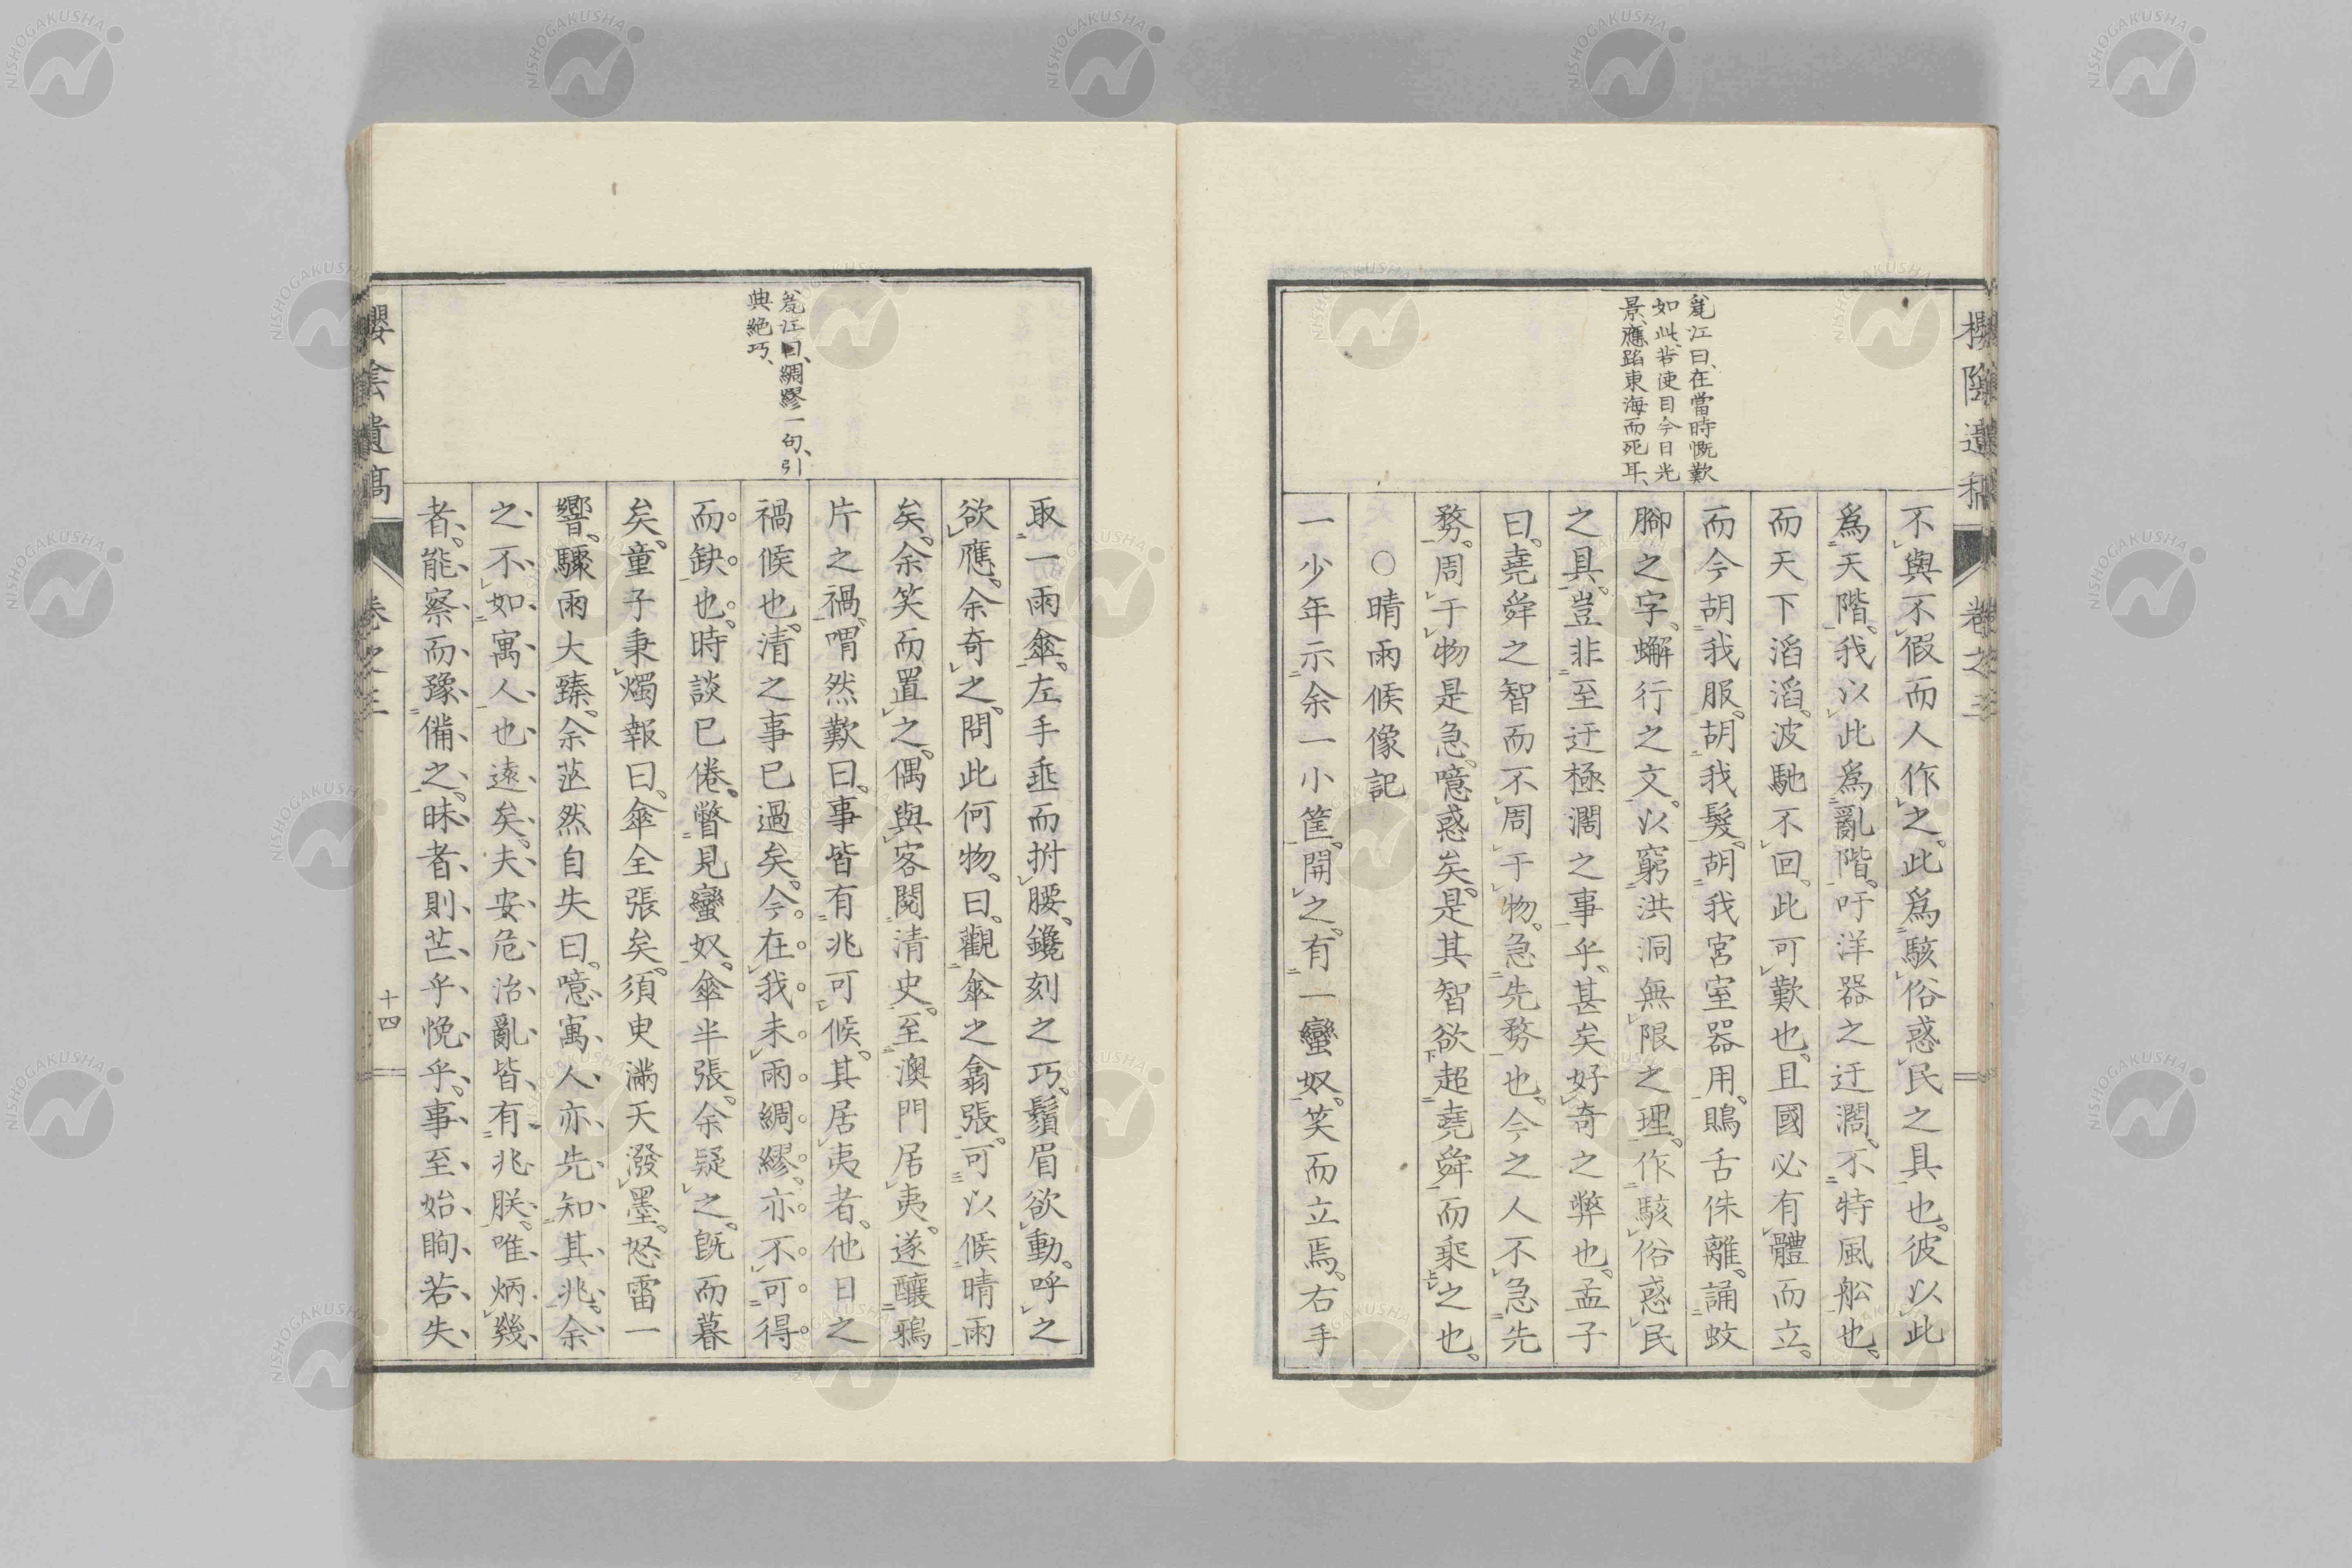 甕江曰、在當時慨歎
如此、若使目今日光
景、應蹈東海而死耳、
不與不假而人作之。此爲駭俗惑民之具也。彼以此
爲天階。我以此爲亂階。吁洋器之迂濶。不特風舩也。
而天下滔滔。波馳不回。此可歎也。且國必有體而立。
而今胡我服。胡我髮。胡我宮室器用。鴃舌侏離。誦蚊
腳之字。蠏行之文。以窮洪洞無限之理。作駭俗惑民
之具。豈非至迂極濶之事乎。甚矣好奇之弊也。孟子
曰。堯舜之智而不周于物。急先務也。今之人不急先
務。周于物是急。噫惑矣。是其智欲超堯舜而乘之也。
○晴雨候像記
一少年示余一小筐。開之。有一蠻奴。笑而立焉。右手
甕江曰、綢繆一句、引
典絶巧、
取一雨傘。左手垂而拊腰。鑱刻之巧。鬚眉欲動。呼之
欲應。余奇之。問此何物。曰。觀傘之翕張。可以候晴雨
矣。余笑而置之。偶與客閱清史。至澳門居夷。遂釀鴉
片之禍。喟然歎曰。事皆有兆可候。其居夷者。他日之
禍候也。清之事已過矣。今在我未雨綢繆。亦不可得
而缺也。時談已倦。瞥見蠻奴。傘半張。余疑之。既而暮
矣。童子秉燭報曰。傘全張矣。須臾滿天潑墨。怒雷一
響。驟雨大臻。余茫然自失曰。噫寓人亦先知其兆。余
之不如寓人也遠矣。夫安危治亂皆有兆朕。唯炳幾
者。能察而豫備之。昧者則芒乎怳乎。事至始眴若失
櫻陰遺稿
卷之三
十四